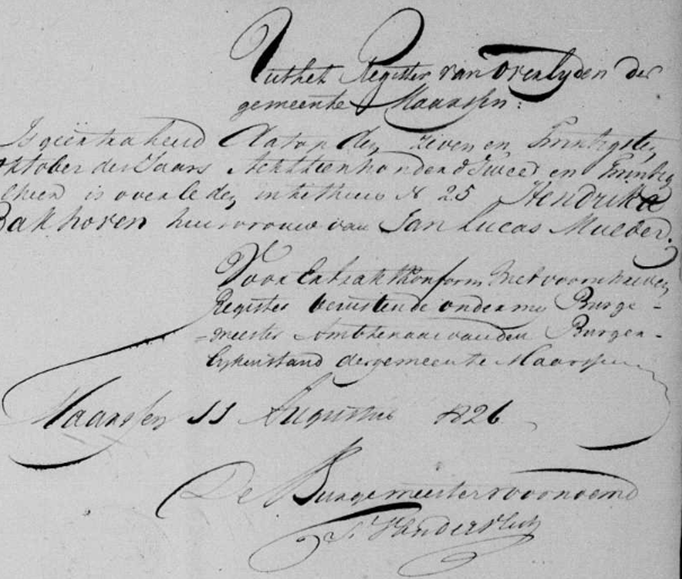 Uit het Register van Overlyden der
gemeente Maarssen:
Is geëxtraheerd Dat op den zeven en Twintigsten
Oktober des Jaars Achttienhonderd Twee en Twintig
alhier is overleden in het huis N 25 Hendrika
Bakhoven huisvrouw van Jan Lucas Mulder.
Voor Extrakt Konform met voorschreven
Register berustende onder my Burge-
=meester Ambtenaar van den Burger-
lyken stand der gemeente Maarssen
Maarssen 11 Augustus 1826
De Burgemeester voornoemd